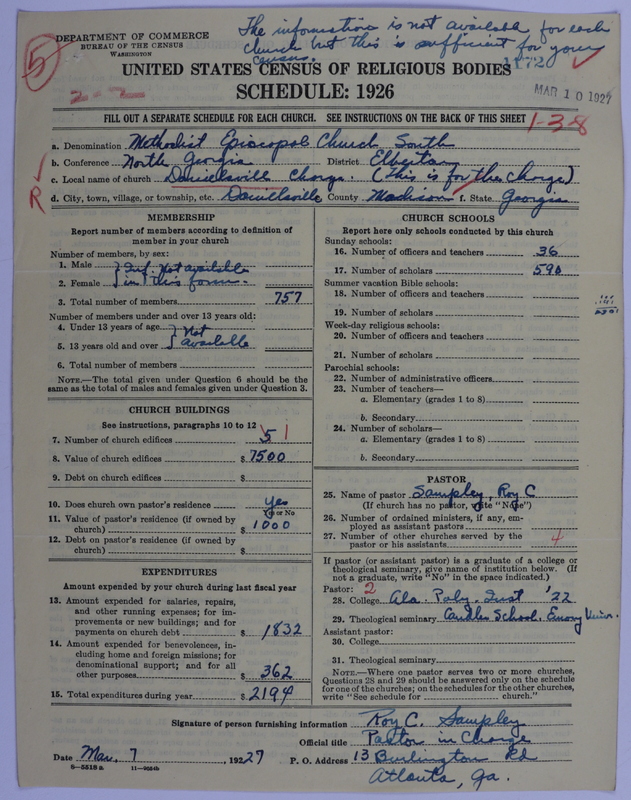 The information is not available for each
church but this is sufficient for your
census.
DEPARTMENT OF COMMERCE
BUREAU OF THE CENSUS
WASHINGTON
5
1172
2-2
UNITED STATES CENSUS OF RELIGIOUS BODIES
SCHEDULE: 1926
MAR 10 1927
FILL OUT A SEPARATE SCHEDULE FOR EACH CHURCH. SEE INSTRUCTIONS ON THE BACK OF THIS SHEET
1-38
a. Denomination Methodist Episcopal Church South
b. Conference North Georgia District Elberton
c. Local name of church Danielsville Charge. (This is for the Charge)
R
d. City, town, village, or township, etc. Danielsville County Madison f. State Georgia
MEMBERSHIP
Report number of members according to definition of
member in your church
Number of members, by sex:
1. Male Inf. Not available
2. Female in this form.
3. Total number of members 757
Number of members under and over 13 years old:
4. Under 13 years of age Not
5. 13 years old and over available
6. Total number of members
NOTE.—The total given under Question 6 should be the
same as the total of males and females given under Question 3.
CHURCH BUILDINGS
See instructions, paragraphs 10 to 12
7. Number of church edifices 5 1
8. Value of church edifices $ 7500
9. Debt on church edifices $
10. Does church own pastor's residence yes
Yes or No
11. Value of pastor's residence (if owned by
church) $ 1000
12. Debt on pastor's residence (if owned by
church) $
EXPENDITURES
Amount expended by your church during last fiscal year
13. Amount expended for salaries, repairs,
and other running expenses; for im-
provements or new buildings; and for
payments on church debt $ 1832
14. Amount expended for benevolences, in-
cluding home and foreign missions; for
denominational support; and for all
other purposes $ 362
15. Total expenditures during year $ 2194
CHURCH SCHOOLS
Report here only schools conducted by this church
Sunday schools:
16. Number of officers and teachers 36
17. Number of scholars 590
Summer vacation Bible schools:
18. Number of officers and teachers
19. Number of scholars
Week-day religious schools:
20. Number of officers and teachers
21. Number of scholars
Parochial schools:
22. Number of administrative officers
23. Number of teachers—
a. Elementary (grades 1 to 8)
b. Secondary
24. Number of scholars—
a. Elementary (grades 1 to 8)
b. Secondary
PASTOR
25. Name of pastor Sampley, Roy C
(If church has no pastor, write "None")
26. Number of ordained ministers, if any, em-
ployed as assistant pastors
27. Number of other churches served by the
pastor or his assistants 4
If pastor (or assistant pastor) is a graduate of a college or
theological seminary, give name of institution below. (If
not a graduate, write "No" in the space indicated.)
Pastor: 2
28. College Ala. Poly. Inst '22
29. Theological seminary Candler School. Emory Univ.
Assistant pastor:
30. College
31. Theological seminary
NOTE.—Where one pastor serves two or more churches,
Questions 28 and 29 should be answered only on the schedule
for one of the churches; on the schedules for the other churches,
write "See schedule for church."
Signature of person furnishing information Roy C. Sampley
Official title Pastor in Charge
Date Mar. 7, 1927 P. O. Address 13 Burlington Rd
Atlanta, Ga.
8—5518 a 11—9024b